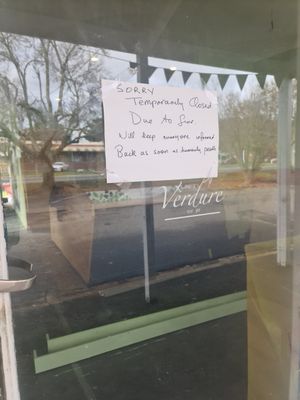 SORRY
Temporarily Closed
Due to fire.
Will keep everyone informed
Back as soon as humanly possible
Verdure